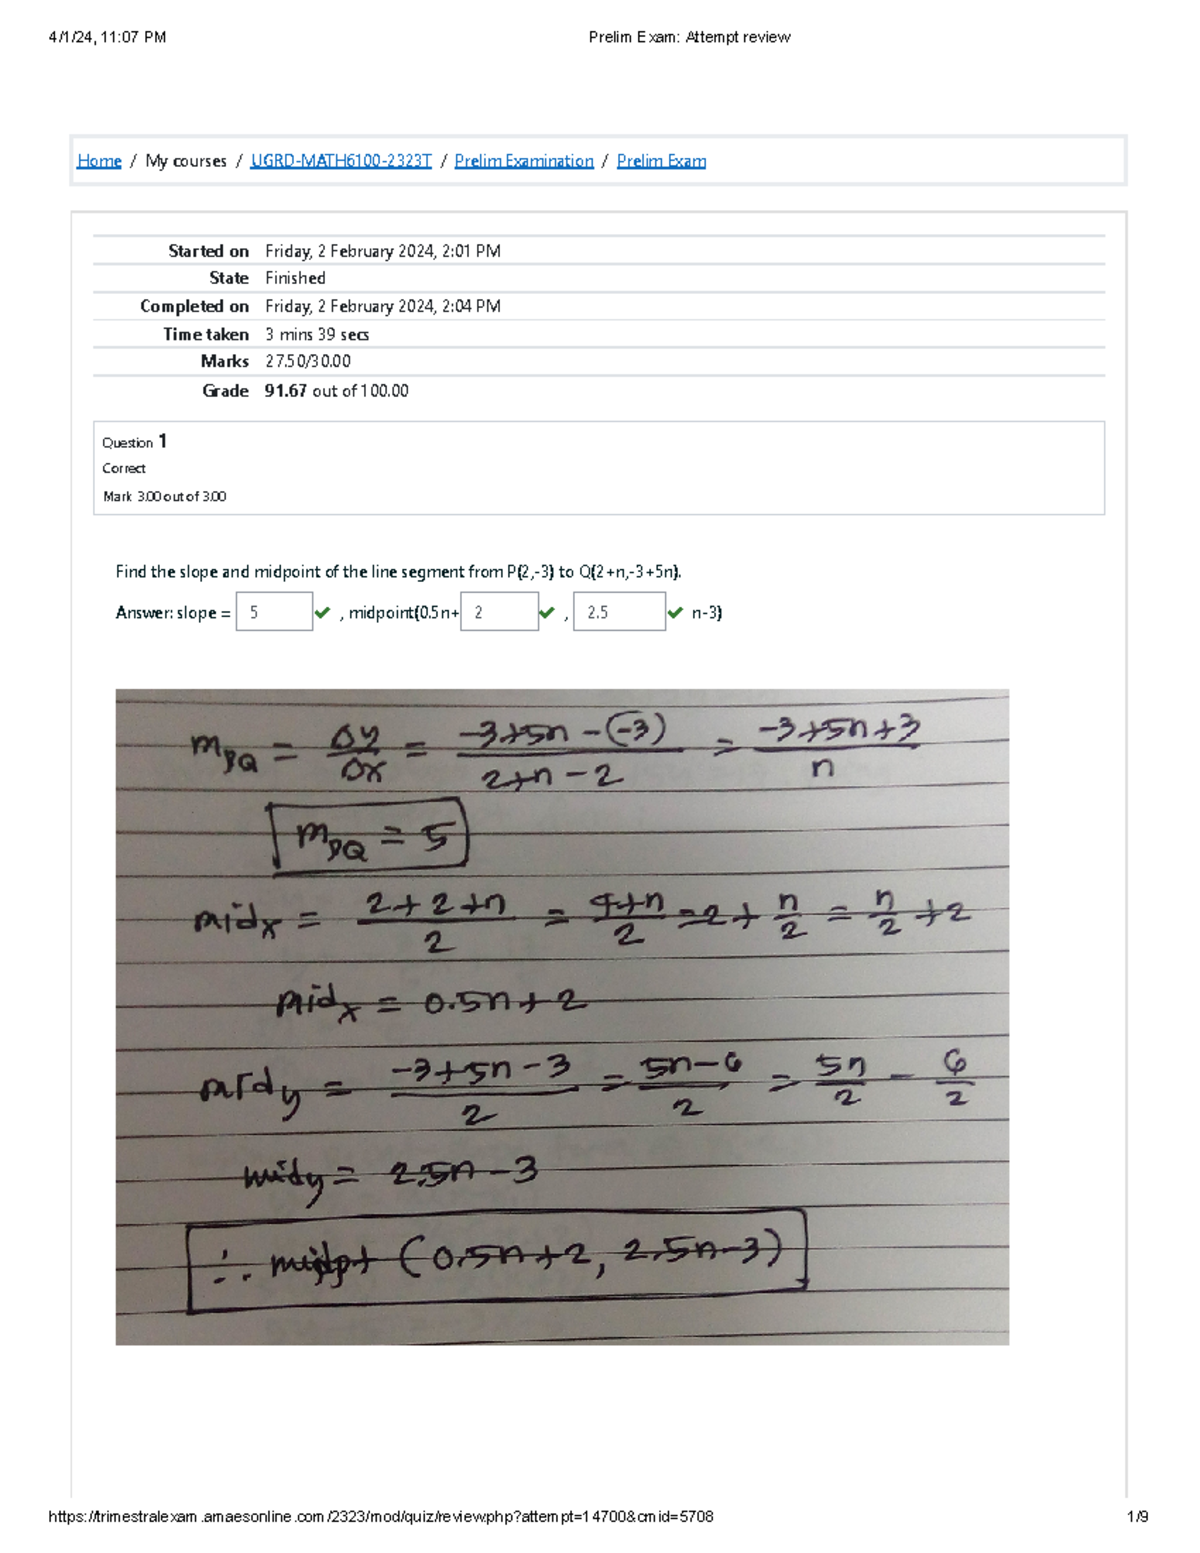 4/1/24, 11:07 PM Prelim Exam: Attempt review
Home / My courses / UGRD-MATH6100-2323T / Prelim Examination / Prelim Exam
Started on Friday, 2 February 2024, 2:01 PM
State Finished
Completed on Friday, 2 February 2024, 2:04 PM
Time taken 3 mins 39 secs
Marks 27.50/30.00
Grade 91.67 out of 100.00
Question 1
Correct
Mark 3.00 out of 3.00
Find the slope and midpoint of the line segment from P(2,-3) to Q(2+n,-3+5n).
Answer: slope = 5 ✔ , midpoint(0.5n+ 2 ✔ , 2.5 ✔ n-3)
m_PQ = Δy/Δx = (-3+5n-(-3))/(2+n-2) = (-3+5n+3)/n
m_PQ = 5
mid_x = (2+2+n)/2 = (4+n)/2 = 2 + n/2 = n/2 + 2
mid_x = 0.5n+2
mid_y = (-3+5n-3)/2 = (5n-6)/2 = 5n/2 - 6/2
mid_y = 2.5n-3
∴ midpt (0.5n+2, 2.5n-3)
https://trimestralexam.amaesonline.com/2323/mod/quiz/review.php?attempt=14700&cmid=5708 1/9